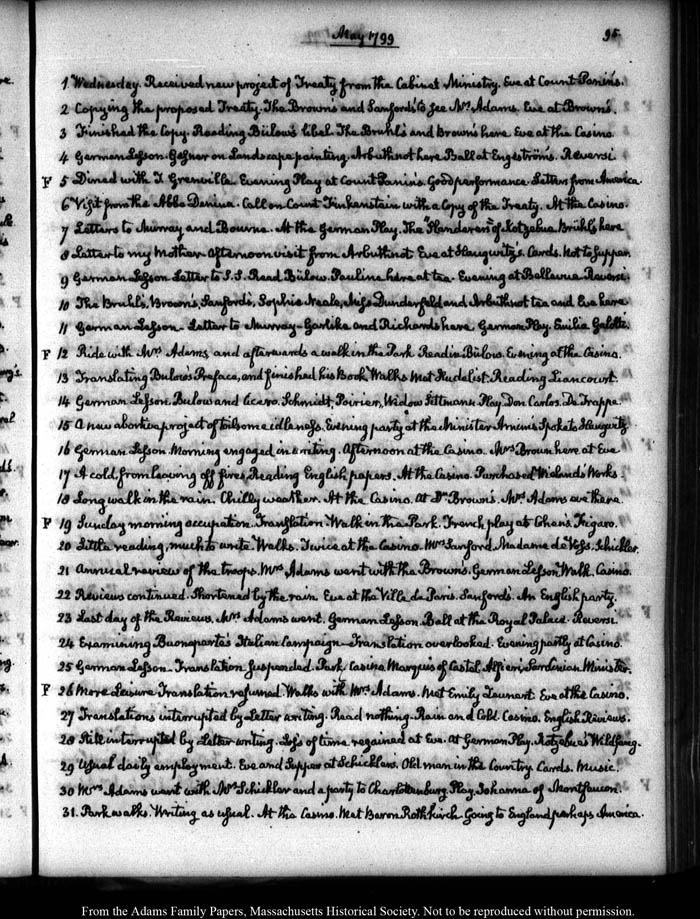 May 1799
95
1 Wednesday. Received new project of Treaty from the Cabinet Ministry. Eve at Count Panin's.
2 Copying the proposed Treaty. The Brown's and Sanford's to see Mrs Adams. Eve at Brown's.
3 Finished the Copy. Reading Bülow's libel. The Brühl's and Brown's here. Eve at the Casino
4 German Lesson. Gesner on Landscape painting. Arbuthnot here Ball at Engeström's. Reversi
F 5 Dined with T. Grenville. Evening Play at Count Panin's. Good performance. Letters from America.
6 Visit from the Abbé Denina. Call on Count Finkenstein with a Copy of the Treaty. At the Casino.
7 Letters to Murray and Bourne. At the German Play. The of Kotzebue Brühls here
8 Letter to my Mother. Afternoon visit from Arbuthnot Eve at Haugwitz's. Cards. Not to supper.
9 German Lesson Letter to Read Bülow. Pauline here at tea. Evening at Bellevue. Reversi.
10 The Bruhl's, Brown's, Sanford's, Sophie Neale, Miss Dunderfeld and Arbuthnot tea and Eve here
11 German Lesson. Letter to Murray. Garlike and Richards here. German Play. Emilia Galotti.
F 12 Ride with Mrs Adams, and afterwards a walk in the Park Reading Bülow. Evening at the Casino.
13 Translating Bulow's Preface, and finished his Book. Walks Met Hudelist. Reading Liancourt.
14 German Lesson. Bulow and Cicero. Schmidt, Poirier, Widow Pittmann. Play Don Carlos. De Trappe.
15 A new abortive project of toilsome idleness. Evening party at the Minister Arnim's Spoke to Haugwitz
16 German Lesson Morning engaged in writing. Afternoon at the Casino. Mrs Brown here at Eve
17 A cold from leaving off fires, Reading English papers. At the Casino. Purchased Wieland's Works.
18 Long walk in the rain. Chilly weather. At the Casino. At Dr Brown's. Mrs Adams there
F 19 Sunday morning occupation. Translation Walk in the Park. French play at Cohen's. Figaro.
20 Little reading, much to write Walks. Twice at the Casino. Mrs Sanford, Madame de Voss, Schickler.
21 Annual review of the troops. Mrs Adams went with the Brown's. German Lesson Walk. Casino.
22 Reviews continued. Shortened by the rain. Eve at the Ville de Paris. Sanford's. An English party.
23 Last day of the Reviews. Mrs Adams went. German Lesson. Ball at the Royal Palace. Reversi
24 Examining Buonaparte's Italian Campaign. Translation overlooked. Evening partly at Casino.
25 German Lesson. Translation suspended. Park Casino Marquis of Castel Alfieri, Sardinian Minister.
F 26 More Leisure Translation resumed. Walks with Mrs Adams. Met Emily Eve at the Casino.
27 Translations interrupted by Letter writing. Read nothing. Rain and Cold. Casino. English Reviews.
28 Still interrupted by Letter writing. Loss of time regained at Eve. At German Play. Kotzebue's Wildfang.
29 Usual daily employment. Eve and Supper at Schickler's. Old man in the Country Cards. Music.
30 Mrs Adams went with Mrs Schickler and a party to Charlottenburg. Play Johanna of Montfaucon.
31. Park walks. Writing as usual. At the Casino. Met Baron Rothkirch. Going to England perhaps America.
From the Adams Family Papers, Massachusetts Historical Society. Not to be reproduced without permission.